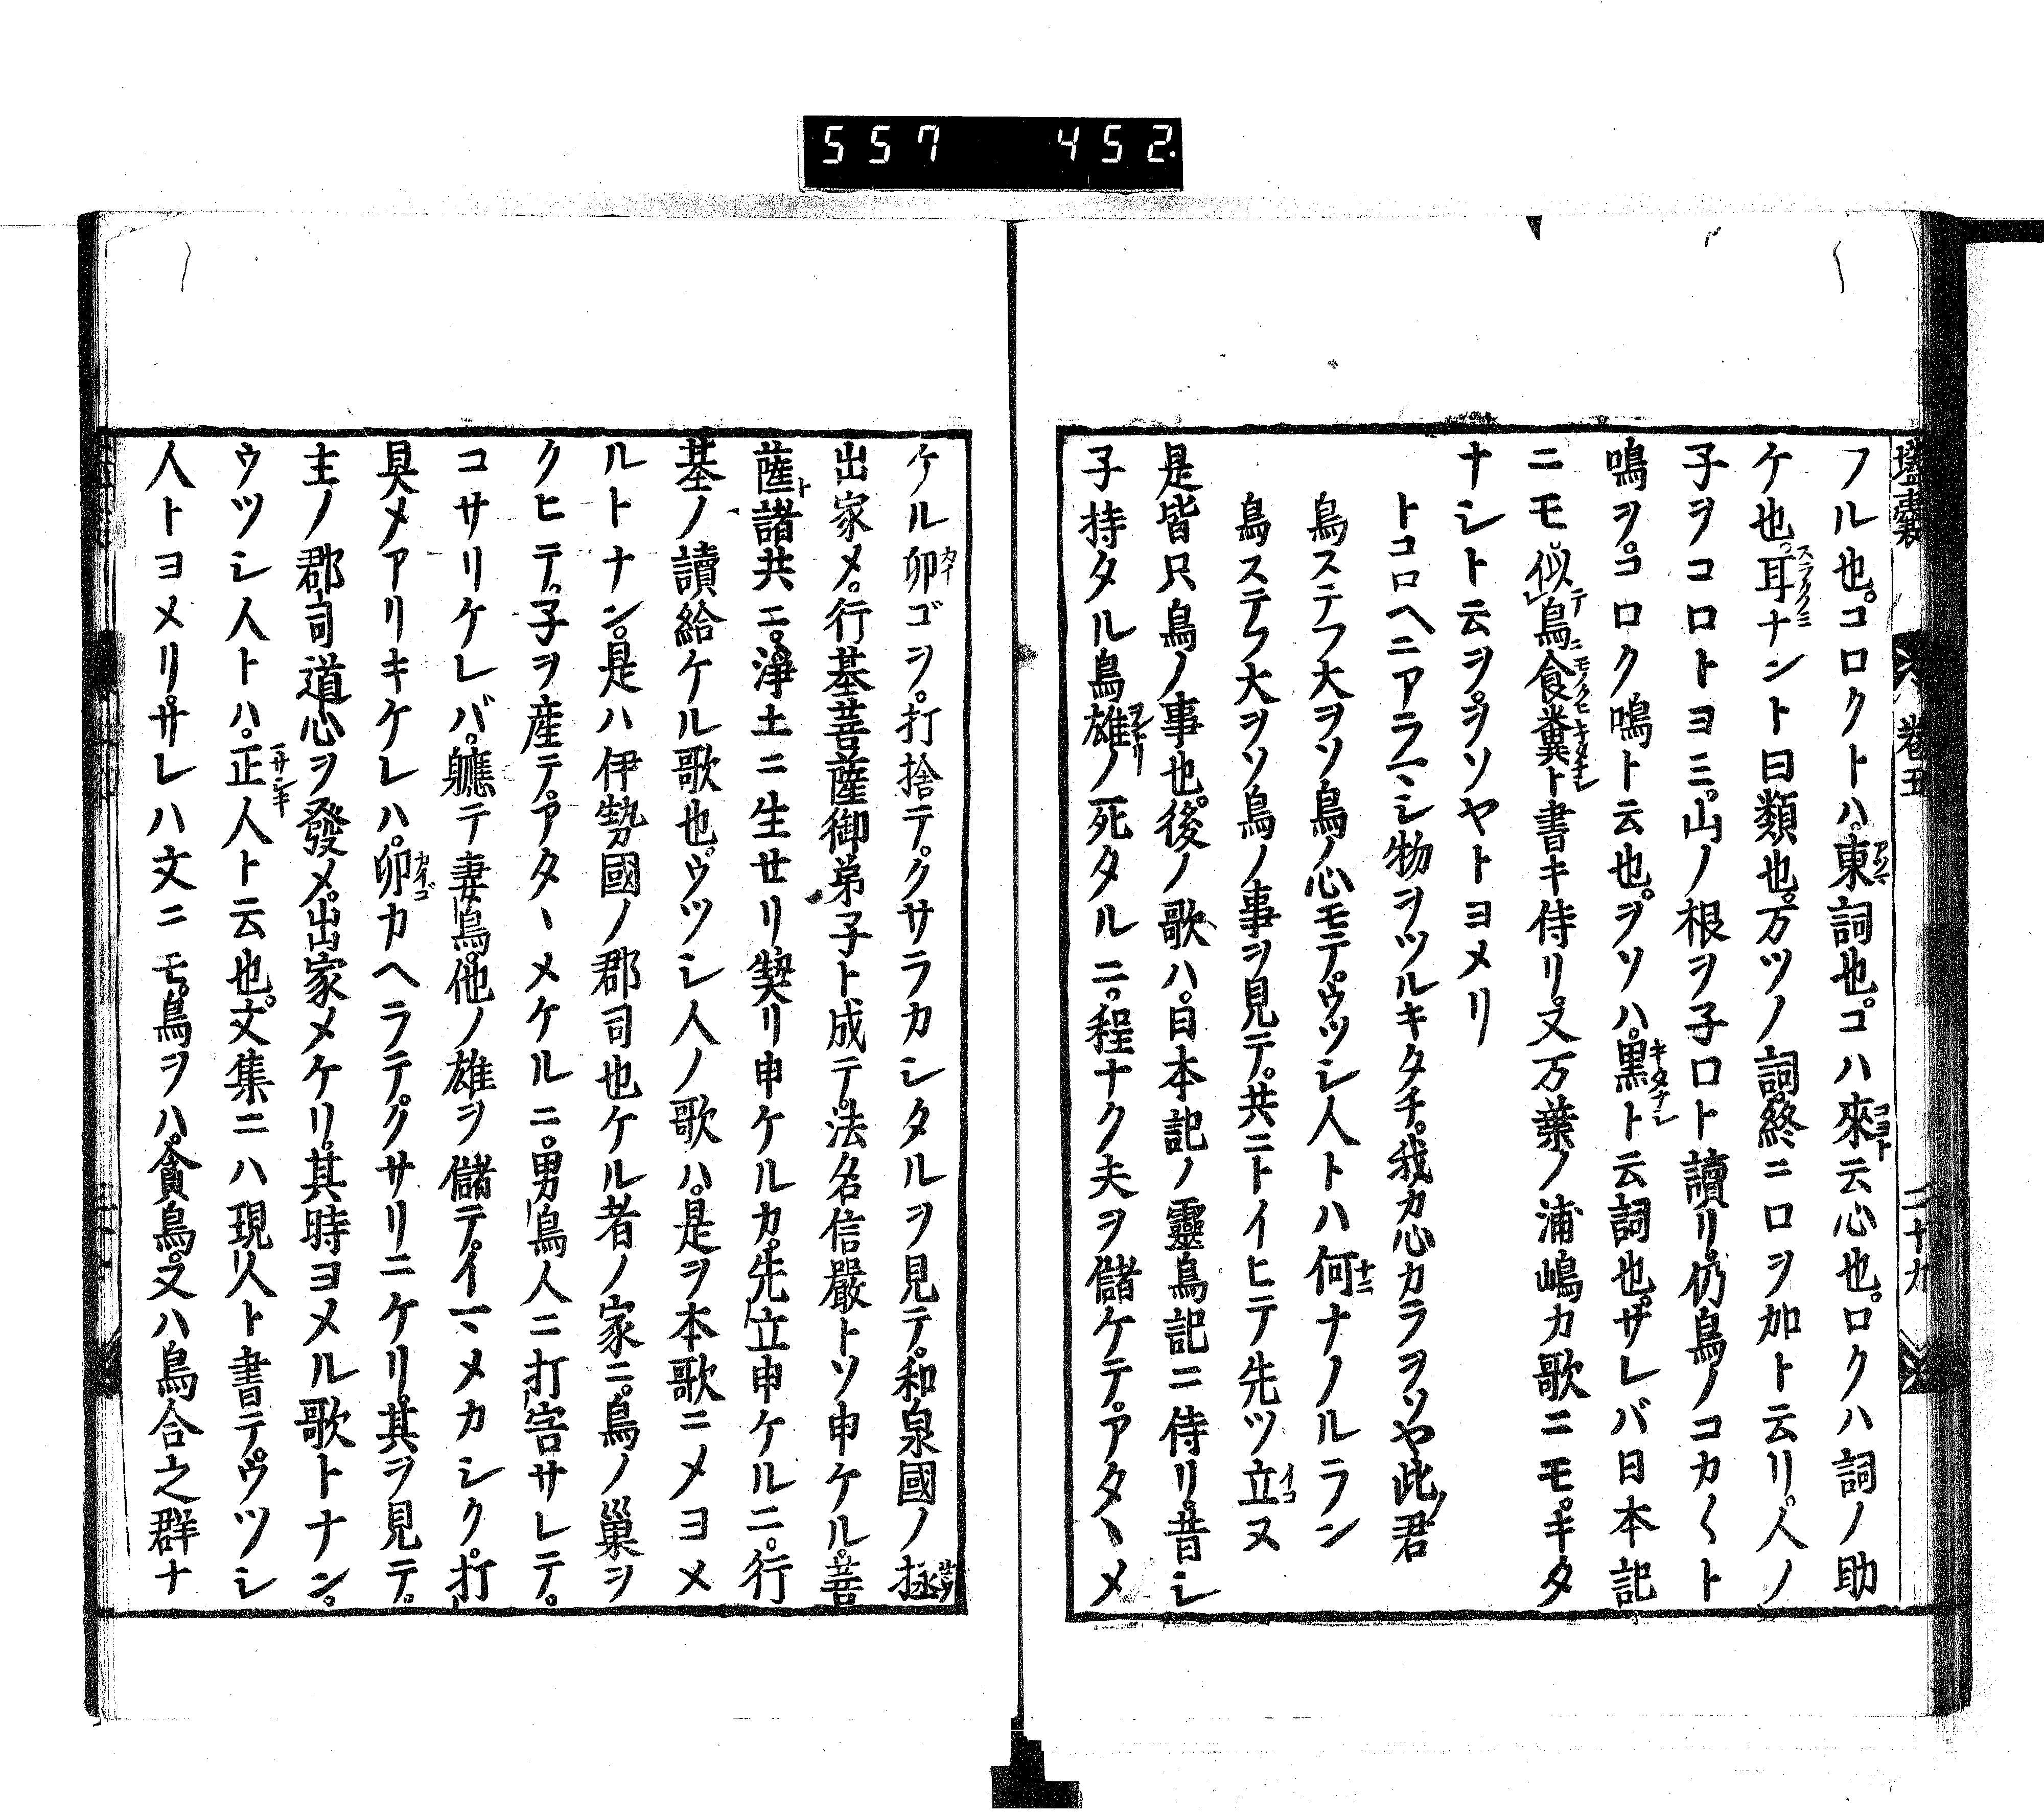 557 452
壒囊 卷五 二十九
フル也。コロクトハ。東詞也。コハ來云心也。ロクハ詞ノ助
ケ也。耳ナント曰類也。万ツノ詞。終ニロヲ加ト云リ。人ノ
子ヲコロトヨミ。山ノ根ヲ子ロト讀リ。仍鳥ノコカ〱ト
鳴ヲ。コロク鳴ト云也。ヲソハ。黒ト云詞也。サレバ日本記
ニモ。似鳥食糞ト書キ侍リ。又万葉ノ浦嶋カ歌ニモ。キタ
ナシト云ヲ。ヲソヤトヨメリ
トコロヘニアラマシ物ヲツルキタチ。我カ心カラヲソヤ此ノ君
鳥ステフ大ヲソ鳥ノ心モテ。ウツシ人トハ何ナノルラン
鳥ステフ大ヲソ鳥ノ事ヲ見テ。共ニトイヒテ先ツ立ヌ
是皆只鳥ノ事也。後ノ歌ハ。日本記ノ靈鳥記ニ侍リ。昔シ
子持タル鳥雄ノ死タルニ。程ナク夫ヲ儲ケテ。アタヽメ
ケル卵ゴヲ。打捨テ。クサラカシタルヲ見テ。和泉國ノ拯
出家メ。行基菩薩御弟子ト成テ。法名信嚴トソ申ケル。菩
薩諸共ニ。淨土ニ生セリ契リ申ケルカ。先立申ケルニ。行
基ノ讀給ケル歌也。ウツシ人ノ歌ハ。是ヲ本歌ニメヨメ
ルトナン。是ハ伊勢國ノ郡司也ケル者ノ家ニ。鳥ノ巢ヲ
クヒテ。子ヲ産テ。アタヽメケルニ。男鳥人ニ打害サレテ。
コサリケレバ。軈テ妻鳥。他ノ雄ヲ儲テ。イマメカシク。打
具メアリキケレハ。卵カヘラテ。クサリニケリ。其ヲ見テ。
主ノ郡司道心ヲ發メ。出家メケリ。其時ヨメル歌トナン。
ウツシ人トハ。正人ト云也。文集ニハ現人ト書テ。ウツシ
人トヨメリ。サレハ文ニモ。鳥ヲハ。貪鳥。又ハ鳥合之群ナ